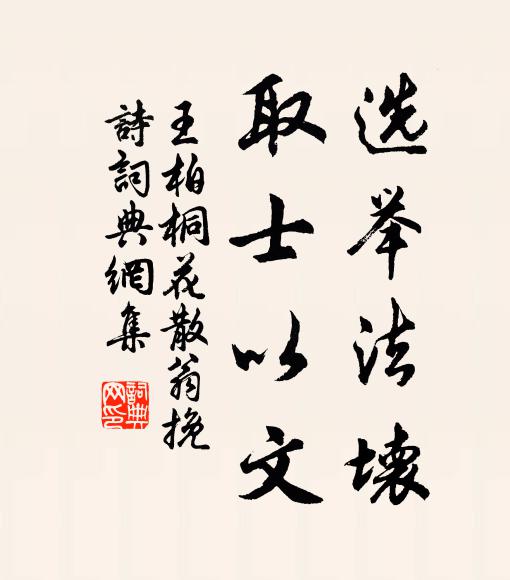 选举法壊
取士以文
王柏桐花散翁挽
詩詞典網集
詞典网印